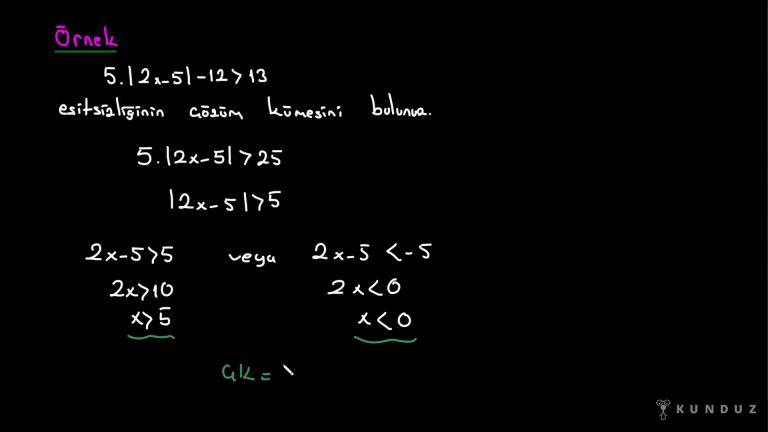 Örnek
5.|2x-5|-12>13
eşitsizliğinin çözüm kümesini bulunuz.
5.|2x-5|>25
|2x-5|>5
2x-5>5 veya 2x-5<-5
2x>10 2x<0
x>5 x<0
ÇK=
KUNDUZ